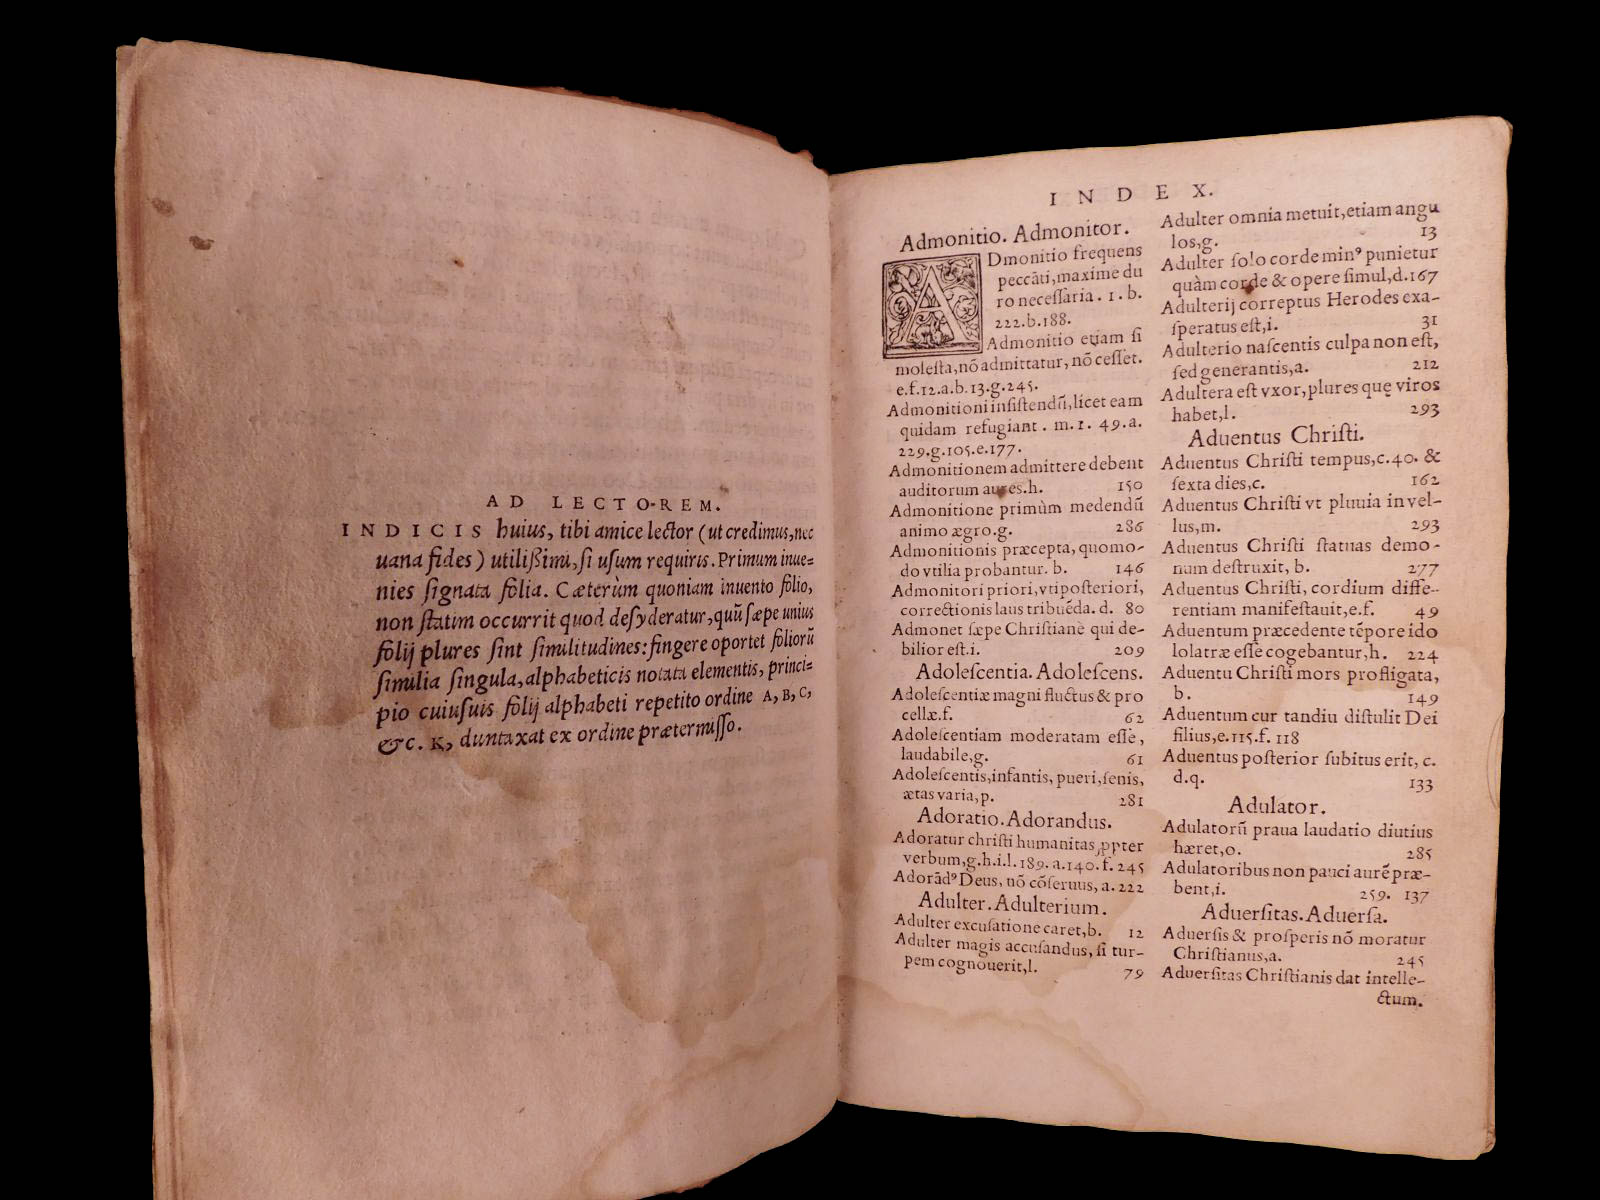 AD LECTOREM.
INDICIS huius, tibi amice lector (ut credimus, nec
uana fides) utilißimū, ſi uſum requiris. Primum inue=
nies ſignata folia. Cæterùm quoniam inuento folio,
non ſtatim occurrit quod deſyderatur, quū ſæpe unius
folij plures ſint ſimilitudines: fingere oportet foliorū
ſimilia ſingula, alphabeticis notata elementis, princi=
pio cuiuſuis folij alphabeti repetito ordine A, B, C,
&c. K, duntaxat ex ordine prætermiſſo.
INDEX.
Admonitio. Admonitor.
ADmonitio frequens
peccāti, maxime du
ro neceſſaria. 1. b.
222. b. 188.
Admonitio etiam ſi
moleſta, nō admittatur, nō ceſſet.
e. f. 12. a. b. 13. g. 245.
Admonitioni inſiſtendū, licet eam
quidam refugiant. m. 1. 49. a.
229. g. 105. e. 177.
Admonitionem admittere debent
auditorum aures. h. 150
Admonitione primùm medendū
animo ægro. g. 286
Admonitionis præcepta, quomo-
do vtilia probantur. b. 146
Admonitori priori, vtipoſteriori,
correctionis laus tribuēda. d. 80
Admonet ſæpe Chriſtianè qui de-
bilior eſt. i. 209
Adoleſcentia. Adoleſcens.
Adoleſcentiæ magni fluctus & pro
cellæ. f. 62
Adoleſcentiam moderatam eſſe,
laudabile, g. 61
Adoleſcentis, infantis, pueri, ſenis,
ætas varia, p. 281
Adoratio. Adorandus.
Adoratur chriſti humanitas, ꝓpter
verbum, g. h. i. l. 189. a. 140. f. 245
Adorādꝰ Deus, nō cōſeruus, a. 222
Adulter. Adulterium.
Adulter excuſatione caret, b. 12
Adulter magis accuſandus, ſi tur-
pem cognouerit, l. 79
Adulter omnia metuit, etiam angu
los, g. 13
Adulter ſolo corde minꝰ punietur
quàm corde & opere ſimul, d. 167
Adulterij correptus Herodes exa-
ſperatus eſt, i. 31
Adulterio naſcentis culpa non eſt,
ſed generantis, a. 212
Adultera eſt vxor, plures quę viros
habet, l. 293
Aduentus Chriſti.
Aduentus Chriſti tempus, c. 40. &
ſexta dies, c. 162
Aduentus Chriſti vt pluuia in vel-
lus, m. 293
Aduentus Chriſti ſtatuas demo-
num deſtruxit, b. 277
Aduentus Chriſti, cordium diffe-
rentiam manifeſtauit, e. f. 49
Aduentum præcedente tēpore ido
lolatræ eſſe cogebantur, h. 224
Aduentu Chriſti mors profligata,
b. 149
Aduentum cur tandiu diſtulit Dei
filius, e. 115. f. 118
Aduentus poſterior ſubitus erit, c.
d. q. 133
Adulator.
Adulatorū praua laudatio diutius
hæret, o. 285
Adulatoribus non pauci aurē præ-
bent, i. 259. 137
Aduerſitas. Aduerſa.
Aduerſis & proſperis nō moratur
Chriſtianus, a. 245
Aduerſitas Chriſtianis dat intelle-
ctum.